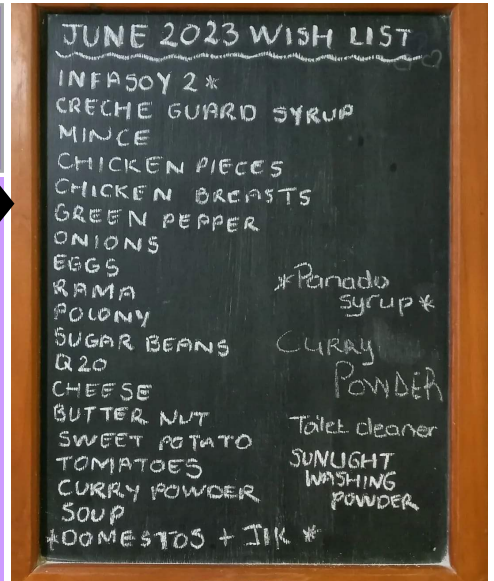 JUNE 2023 WISH LIST
INFASOY 2*
CRECHE GUARD SYRUP
MINCE
CHICKEN PIECES
CHICKEN BREASTS
GREEN PEPPER
ONIONS
EGGS
RAMA
POLONY
SUGAR BEANS
Q20
CHEESE
BUTTER NUT
SWEET POTATO
TOMATOES
CURRY POWDER
SOUP
*DOMESTOS + JIK *
*Panado
syrup*
CURRY
POWDER
Toilet cleaner
SUNLIGHT
WASHING
POWDER